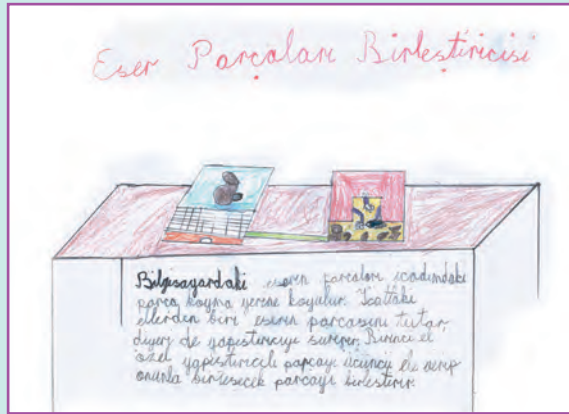 Eser Parçaları Birleştiricisi
Bilgisayardaki eserin parçaları icadımdaki
parça koyma yerine koyulur. İcattaki
ellerden biri eserin parçasını tutar,
diğeri de yapıştırıcıyı sürer. Birinci el
özel yapıştırıcılı parçayı üçüncü ele verip
onunla birleşecek parçayı birleştirir.